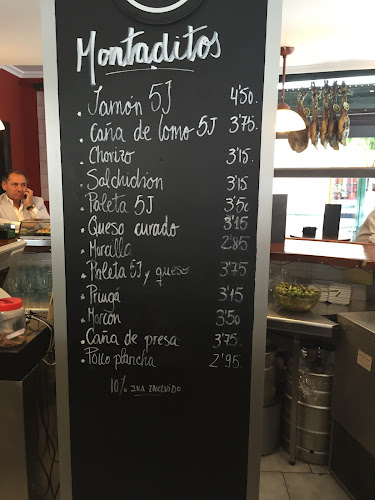 Montaditos
. Jamón 5J 4'50.
. Caña de lomo 5J 3'75.
. Chorizo 3'15.
. Salchichion 3'15
. Paleta 5J 3'50
. Queso curado 3'15
. Morcilla 2'85
. Paleta 5J y queso 3'75
. Pringá 3'15
. Morcón 3'50
. Caña de presa 3'75.
. Pollo plancha 2'95.
10% IVA INCLUIDO